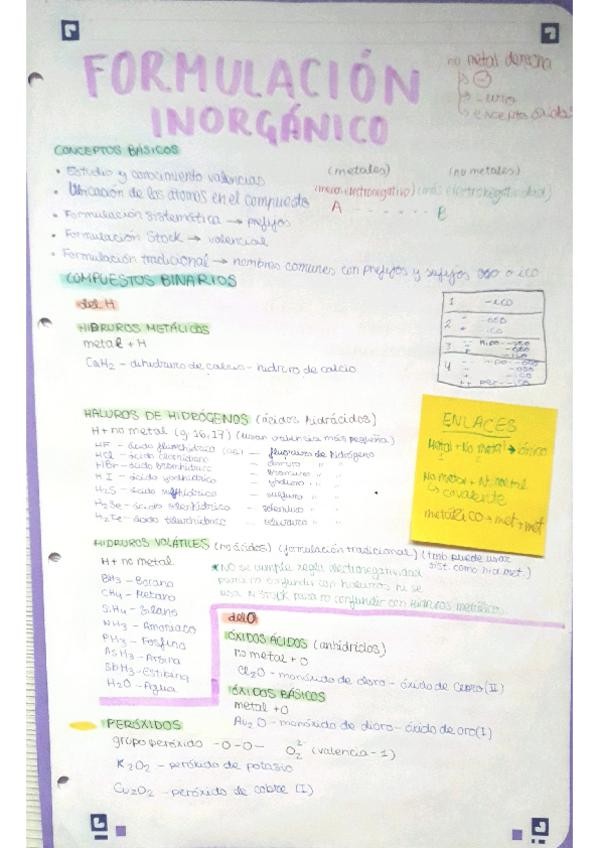 FORMULACIÓN
INORGÁNICO
no metal derecha
-uro
excepto óxidos
CONCEPTOS BÁSICOS
• Estudio y conocimiento valencias
• Ubicación de los átomos en el compuesto
(metales) (no metales)
(menos electronegativo) (más electronegatividad)
A - - - - - - B
• Formulación sistemática → prefijos
• Formulación Stock → valencial
• Formulación tradicional → nombres comunes con prefijos y sufijos oso o ico
COMPUESTOS BINARIOS
1 -ico
2 - -oso
+ -ico
3
4
del H
HIDRUROS METÁLICOS
metal + H
CaH2 - dihidruro de calcio - hidruro de calcio
HALUROS DE HIDRÓGENOS (ácidos hidrácidos)
H + no metal (g 16, 17) (usan valencia más pequeña)
HF - ácido fluorhídrico - fluoruro de hidrógeno
HCl - ácido clorhídrico - cloruro " "
HBr - ácido bromhídrico - bromuro " "
HI - ácido yodhídrico - yoduro " "
H2S - ácido sulfhídrico - sulfuro " "
H2Se - ácido selenhídrico - seleniuro " "
H2Te - ácido telurhídrico - telururo " "
ENLACES
Metal + No metal → iónico
No metal + No metal
↳ covalente
metálico → met + met
HIDRUROS VOLÁTILES (no ácidos) (formulación tradicional) (tmb puede usar
sist. como hidr. met.)
H + no metal
*NO se cumple regla electronegatividad
para no confundir con haluros ni se
usa N. Stock para no confundir con hidruros metálicos
BH3 - Borano
CH4 - Metano
SiH4 - Silano
NH3 - Amoniaco
PH3 - Fosfina
AsH3 - Arsina
SbH3 - Estibina
H2O - Agua
del O
ÓXIDOS ÁCIDOS (anhídridos)
no metal + O
Cl2O - monóxido de dicloro - óxido de
ÓXIDOS BÁSICOS
metal + O
Au2O - monóxido de dioro - óxido de oro (I)
PERÓXIDOS
grupo peróxido -O-O- O2 2- (valencia -1)
K2O2 - peróxido de potasio
Cu2O2 - peróxido de cobre (I)